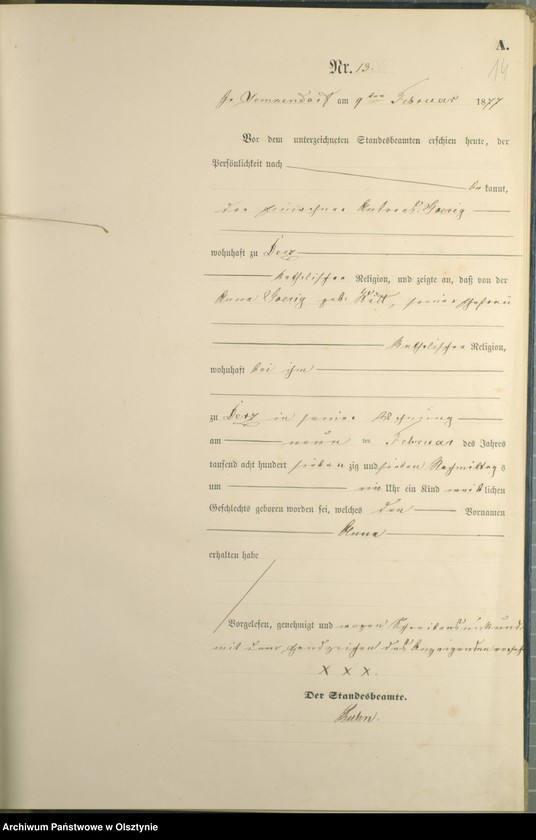 A.
14
Nr. 13.
am 9ten Februar 1877
Vor dem unterzeichneten Standesbeamten erschien heute, der
Persönlichkeit nach
bekannt,
der Einwohner Andreas Goerig
wohnhaft zu Derz
katholischer Religion, und zeigte an, daß von der
Anna Goerig geb. seiner Ehefrau
katholischer Religion,
wohnhaft bei ihm
zu Derz in seiner Wohnung
am neun ten Februar des Jahres
tausend acht hundert siebenzig und sieben Nachmittags
um ein Uhr ein Kind weiblichen
Geschlechts geboren worden sei, welches den Vornamen
Anna
erhalten habe
Vorgelesen, genehmigt und wegen Schreibensunkunde
mit dem Handzeichen des Anzeigenden
X X X.
Der Standesbeamte.
Archiwum Państwowe w Olsztynie